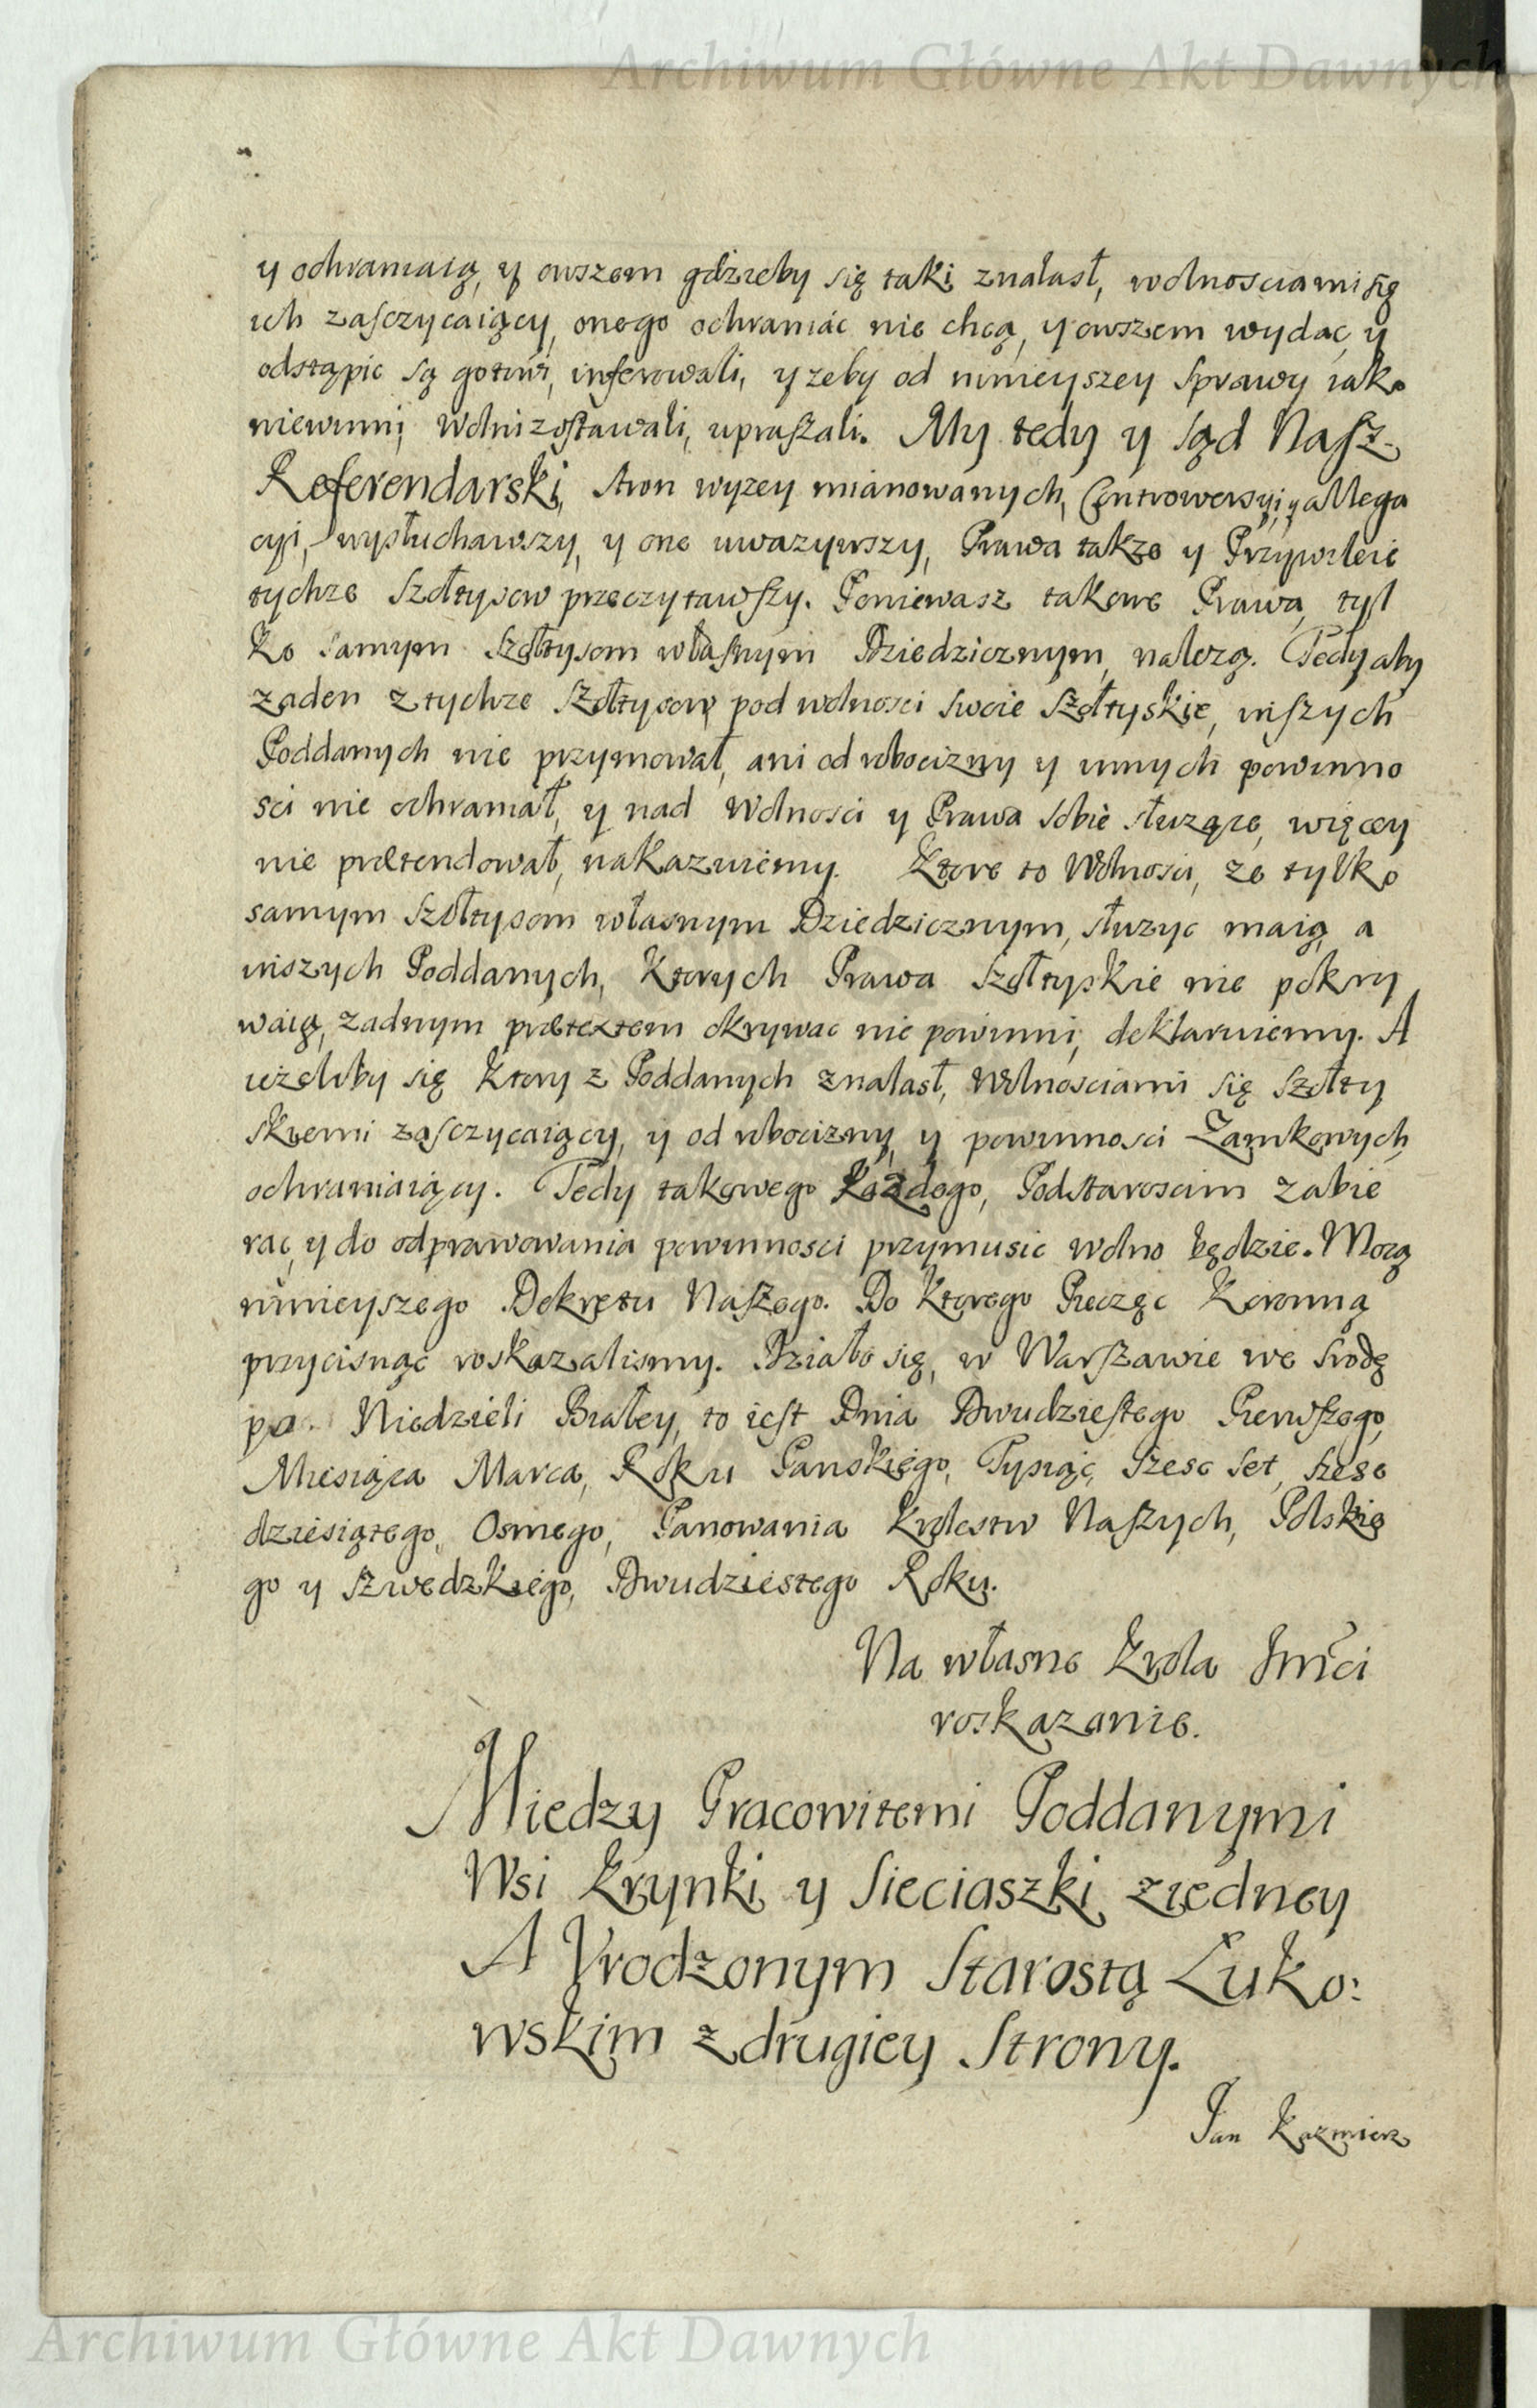 Archiwum Główne Akt Dawnych
y ochraniaią, y owszem gdzieby się taki znalasł, wolnosciami się
ich zasczycaiący, onego ochraniać nie chcą, y owszem wydać, y
odstąpic są gotowi, inferowali, y zeby od ninieyszey sprawy iako
niewinni, wolni zostawali, upraszali. My tedy y Sąd Nasz
Referendarski, stron wyzey mianowanych, Controwersyi, y allega
cyi, wysłuchawszy, y one uwazywszy, Prawa takze y Przywileie
tychze Szołtysow przeczytawszy. Poniewasz takowe Prawa, tyl
ko samym Szołtysom własnym Dziedzicznym, nalezą. Tedy aby
zaden z tychze Szołtysow, pod wolnosci swoie Szołtyskie, inszych
Poddanych nie przymował, ani od robocizny y innych powinno
sci nie ochraniał, y nad Wolnosci y Prawa sobie słuzące, więcey
nie prætendował, nakazuiemy. Ktore to Wolnosci, ze tylko
samym Szołtysom własnym Dziedzicznym, słuzyc maią, a
inszych Poddanych, Ktorych Prawa Szołtyskie nie pokry
waią, zadnym prætextem okrywac nie powinni, deklaruiemy. A
iezeliby się Ktory z Poddanych znalasł, Wolnosciami się Szołty
skiemi zasczycaiący, y od robocizny, y powinnosci Zamkowych
ochraniaiący. Tedy takowego Kazdego, Podstaroscim zabie
rac, y do odprawowania powinnosci przymusic wolno będzie. Mocą
ninieyszego Dekretu Naszego. Do Ktorego Pieczęc Koronną
przycisnąc roskazalismy. Działo się, w Warszawie we srodę
po. Niedzieli Białey, to iest Dnia Dwudziestego Pierwszego,
Miesiąca Marca, Roku Panskiego, Tysiąc, Szesc Set, szesc
dziesiątego, Osmego, Panowania Krolestw Naszych, Polskie
go y Szwedzkiego, Dwudziestego Roku.
Na własne Krola Jmści
roskazanie.
Miedzy Pracowitemi Poddanymi
Wsi Krynki y Sieciaszki ziedney
A Vrodzonym Starostą Łuko:
wskim z drugiey Strony.
Jan Kazmierz
Archiwum Główne Akt Dawnych